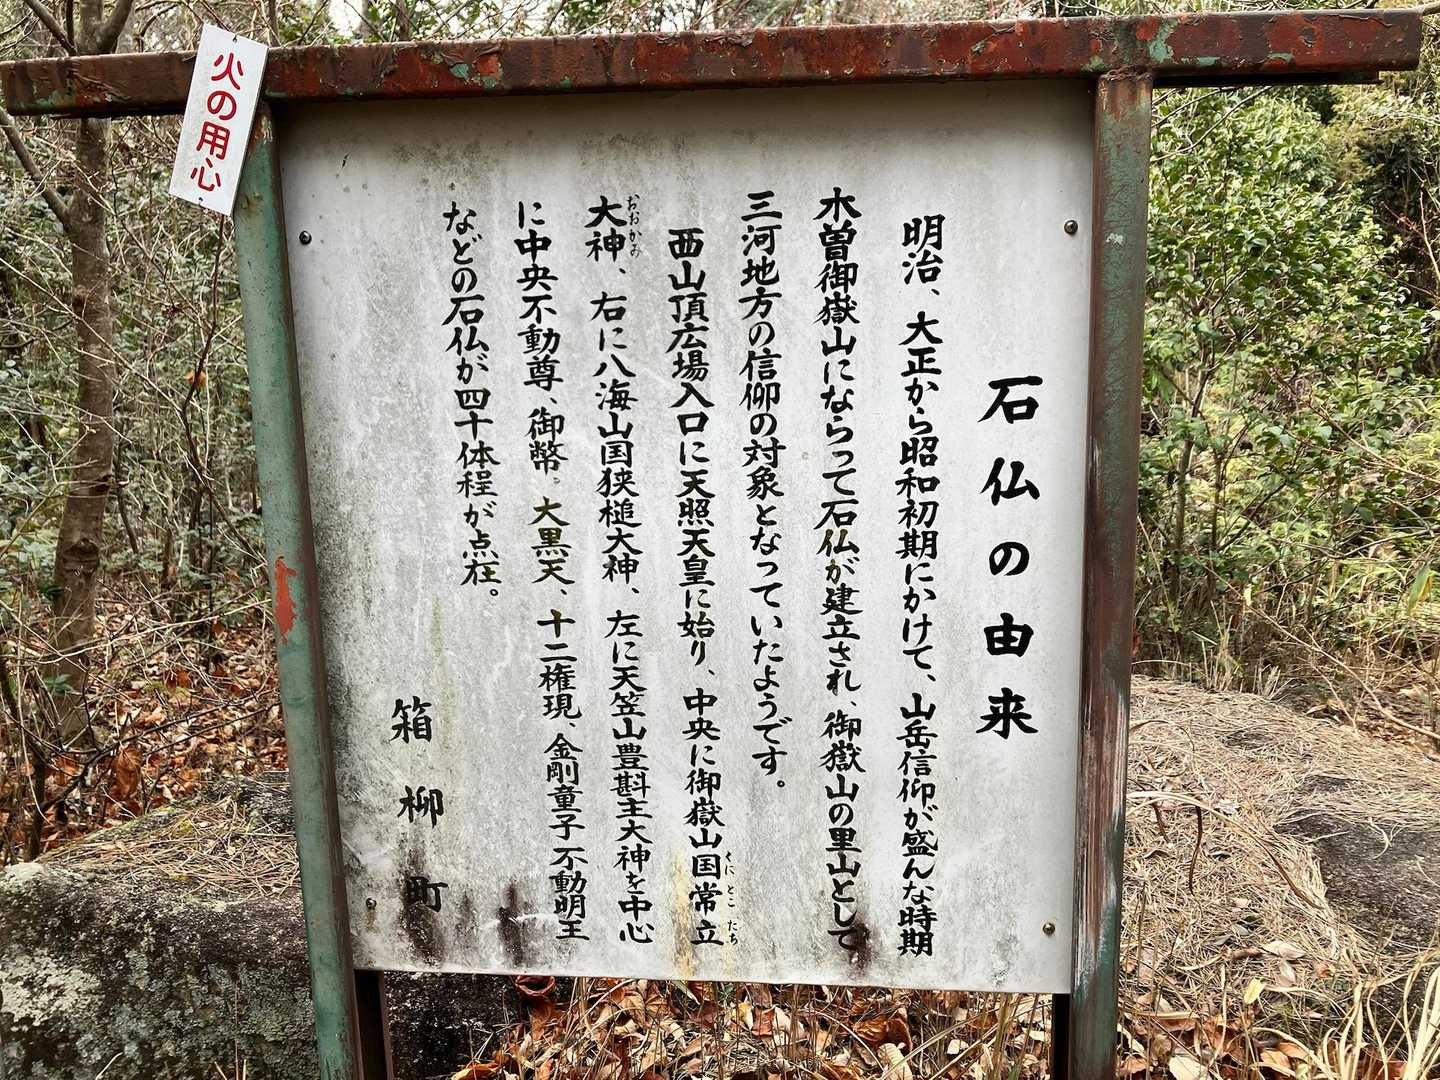 火の用心
石仏の由来
明治、大正から昭和初期にかけて、山岳信仰が盛んな時期
木曽御嶽山にならって石仏が建立され、御嶽山の里山として
三河地方の信仰の対象となっていたようです。
西山頂広場入口に天照天皇に始り、中央に御嶽山国常立
くにとこたち
大神、右に八海山国狭槌大神、左に天笠山豊斟主大神を中心
おおかみ
に中央不動尊、御幣、大黒天、十二権現、金剛童子不動明王
などの石仏が四十体程が点在。
箱柳町